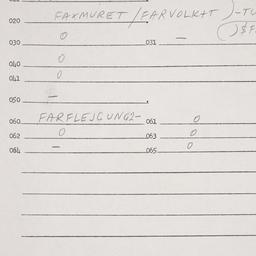 020 FAXMURET / FARVOLKAT )
030 0 031 —
040 0
041 0
050 —
060 FARFLEJCUNG2- 061 0
062 0 063 0
064 — 065 0